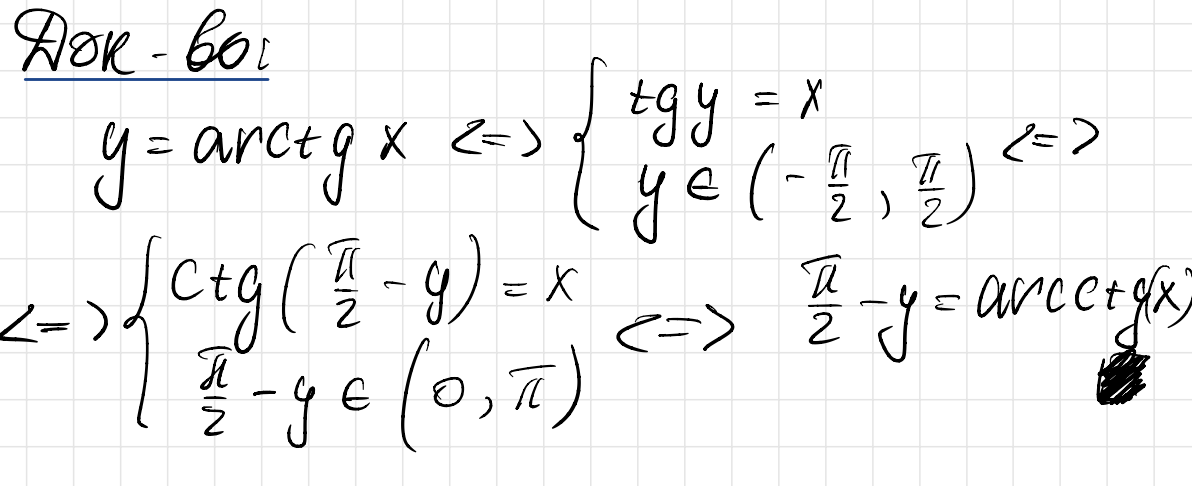 Док-во:
y = arctg x <=> { tg y = x
y ∈ (-π/2, π/2) <=>
<=> { ctg(π/2 - y) = x
π/2 - y ∈ (0, π) <=> π/2 - y = arcctg(x)